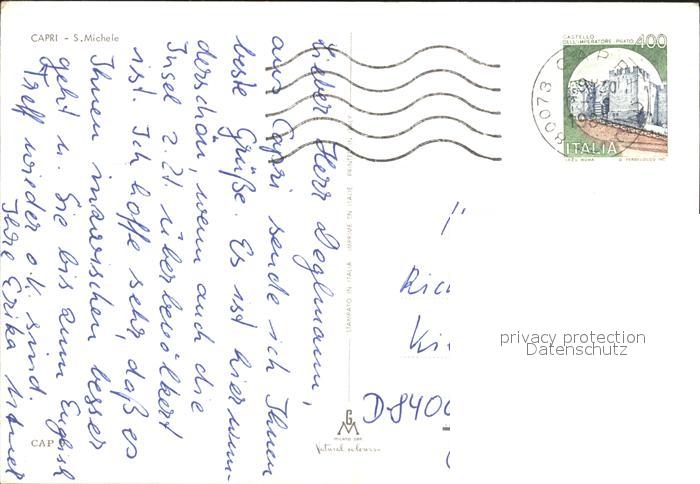 CAPRI - S. Michele
Lieber Herr Deglmann,
aus Capri sende ich Ihnen
beste Grüße. Es ist hier wun-
derschön, wenn auch die
Insel z. Zt. überbevölkert
ist. Ich hoffe sehr, daß es
Ihnen inzwischen besser
geht u. Sie bis zum English
Treff wieder o.k. sind.
Ihre Erika
CAP
STAMPATO IN ITALIA IMPRIMÉ EN ITALIE PRINTED IN ITALY
GM
MILANO
Natural colours
CASTELLO
DELL'IMPERATORE - PRATO
400
ITALIA
80073 CAPRI
Ric
Ki
D-840
privacy protection
Datenschutz